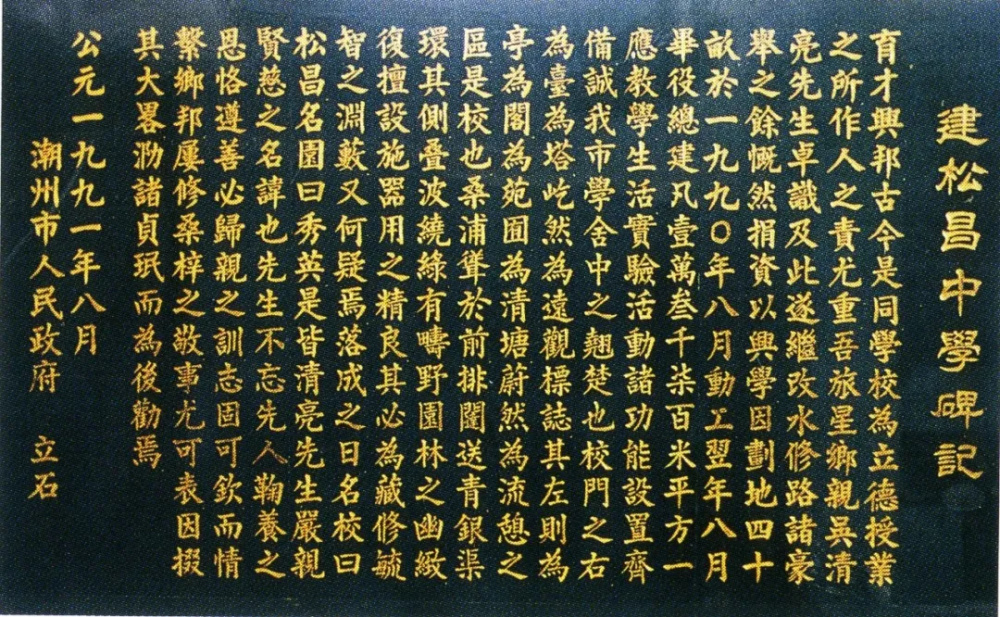 建松昌中學碑記
育才興邦古今是同學校為立德授業
之所作人之責尤重吾旅星鄉親吳清
亮先生卓識及此遂繼改水修路諸豪
舉之餘慨然捐資以興學因劃地四十
畝於一九九〇年八月動工翌年八月
畢役總建凡壹萬叁千柒百米平方一
應教學生活實驗活動諸功能設置齊
備誠我市學舍中之翹楚也校門之右
為臺為塔屹然為遠觀標誌其左則為
亭為閣為苑囿為清塘蔚然為流憩之
區是校也桑浦聳於前排闥送青銀渠
環其側叠波繞綠有疇野園林之幽緻
復擅設施器用之精良其必為藏修毓
智之淵藪又何疑焉落成之日名校曰
松昌名園曰秀英是皆清亮先生嚴親
賢慈之名諱也先生不忘先人鞠養之
恩恪遵善必歸親之訓志固可欽而情
繫鄉邦屢修桑梓之敬事尤可表因掇
其大畧泐諸貞珉而為後勸焉
公元一九九一年八月
潮州市人民政府 立石